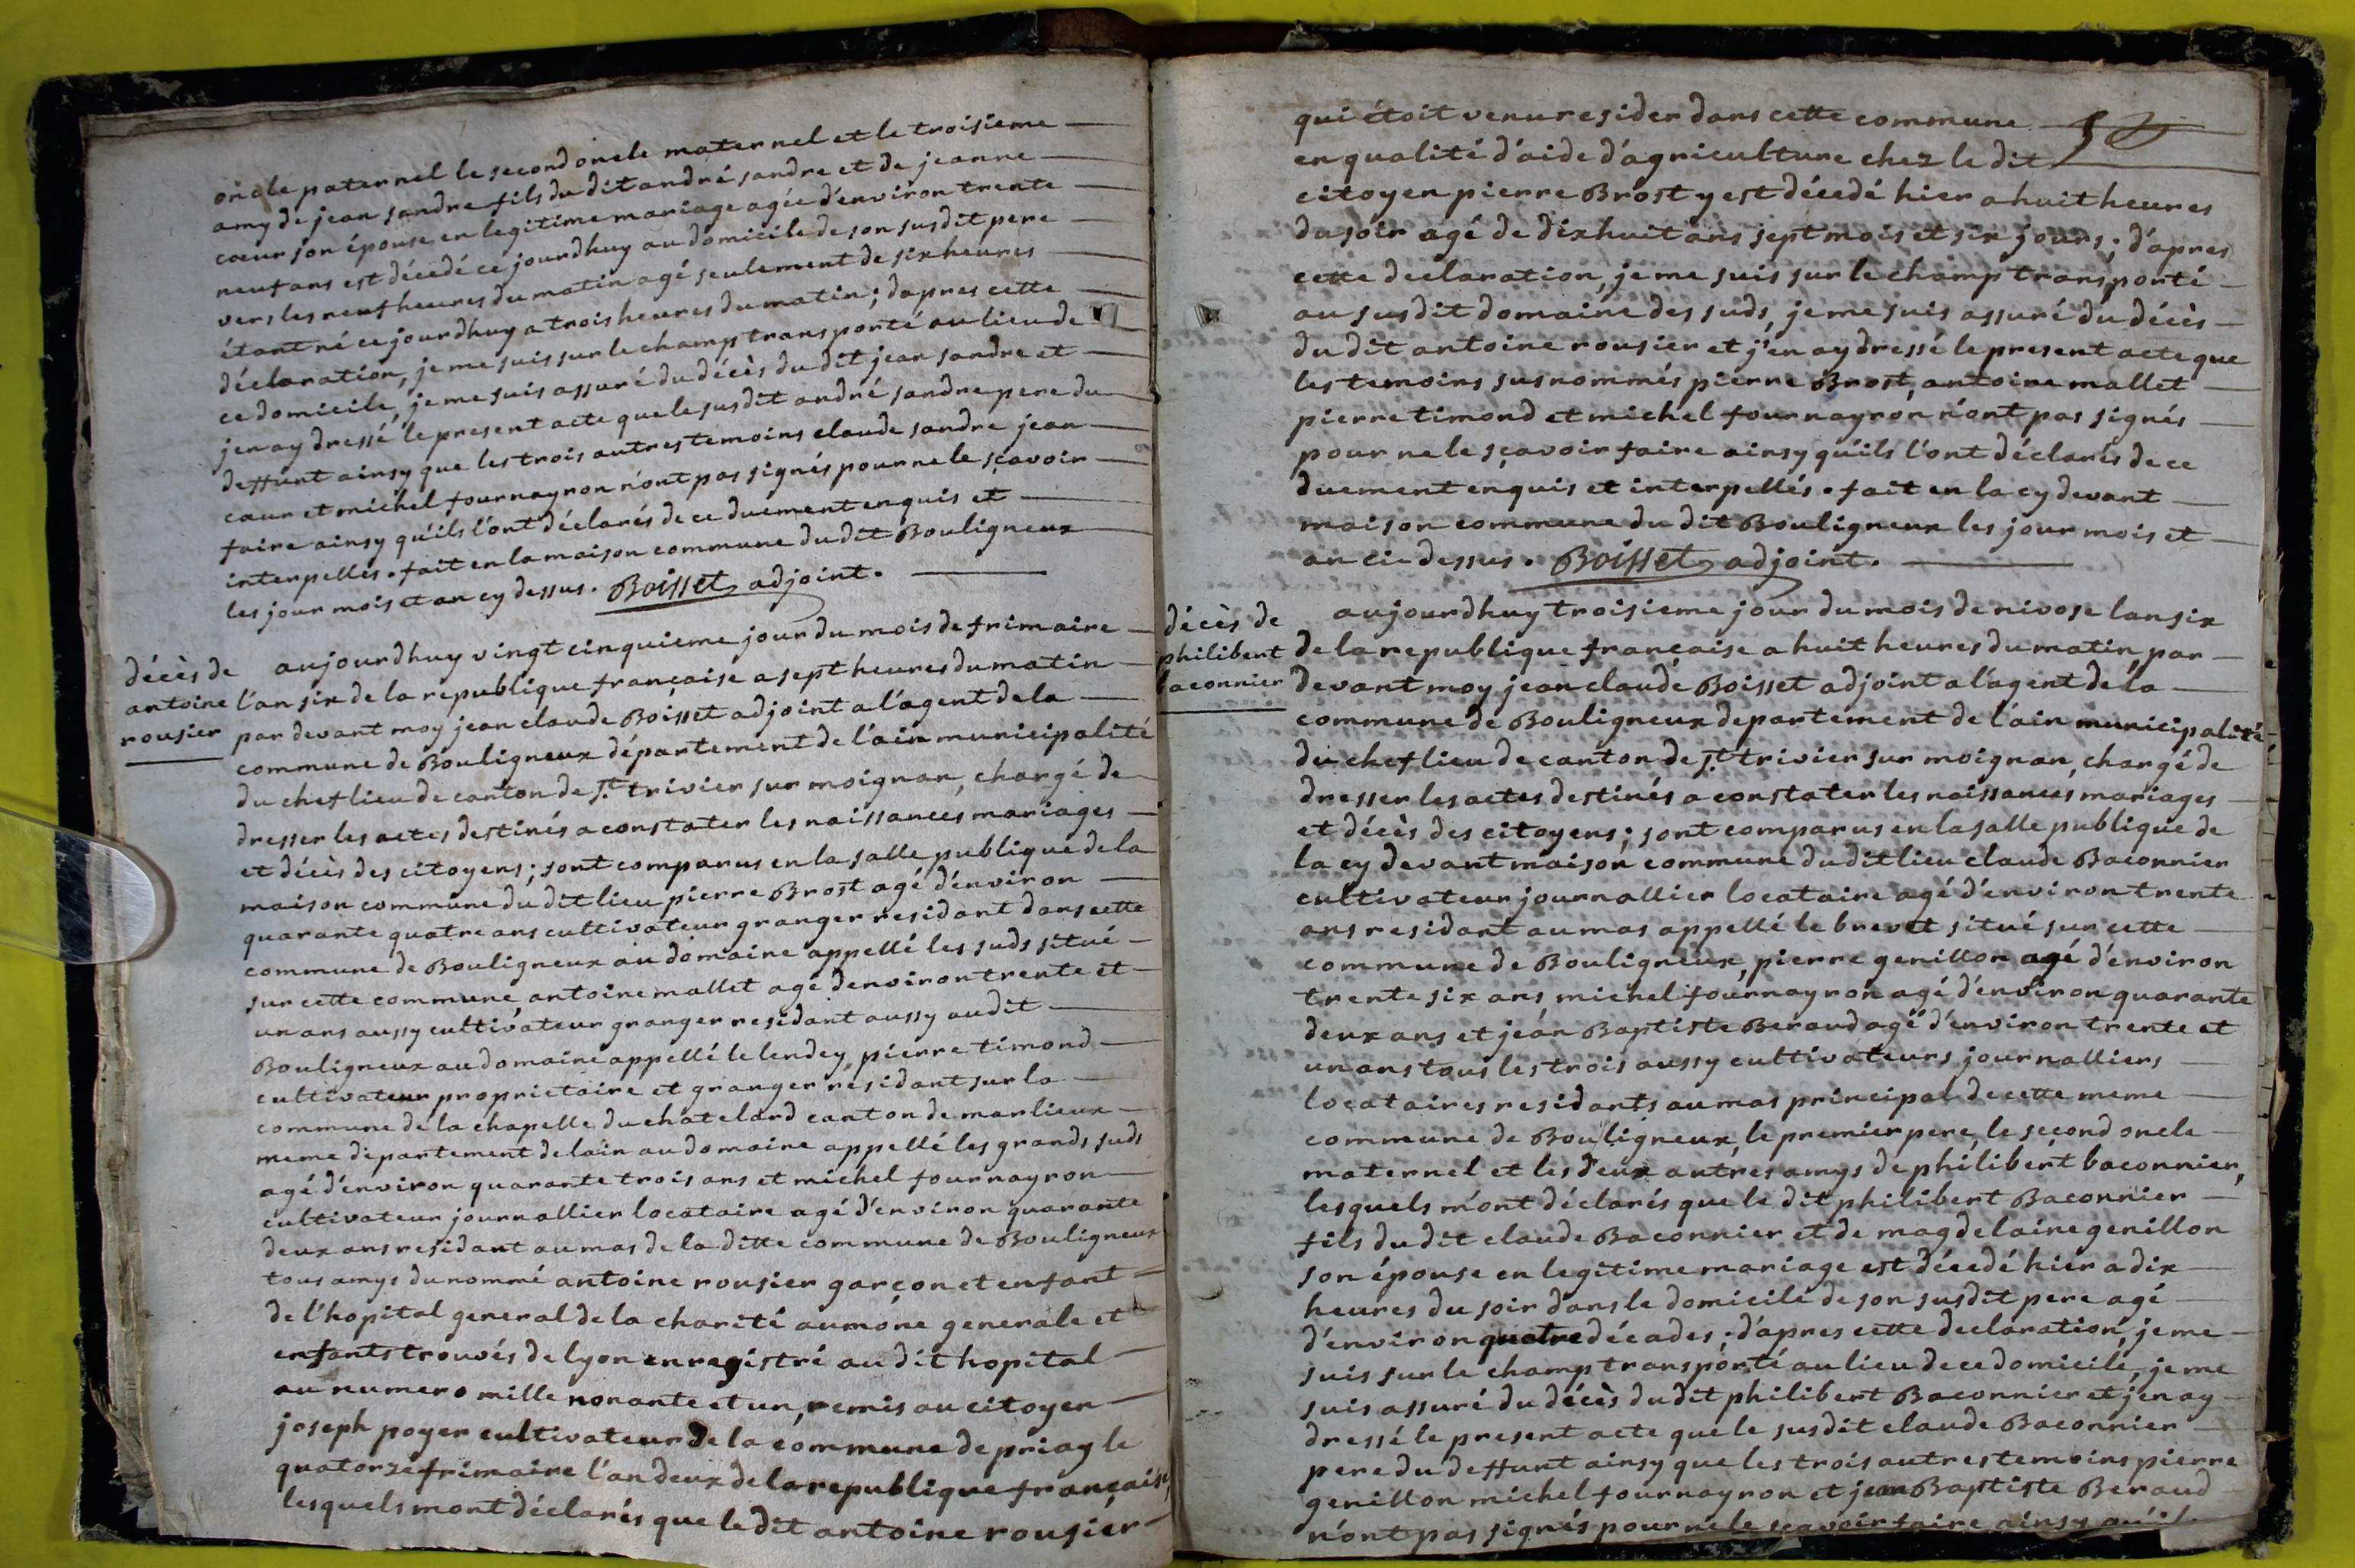 oncle paternel le second oncle maternel et le troisieme
amy de jean sandre fils du dit andré sandre et de jeanne
cœur son épouse en legitime mariage agée d'environ trente
neuf ans est décedé ce jourdhuy au domicile de son susdit pere
vers les neuf heures du matin agé seulement de six heures
étant né ce jourdhuy a trois heures du matin ; dapres cette
déclaration, je me suis sur le champ transporté au lieu de
ce domicile, je me suis assuré du décès du dit jean sandre et
jen ay dressé le present acte que le susdit andré sandre pere du
deffunt ainsy que les trois autres temoins claude sandre jean
cœur et michel fournayron n'ont pas signés pour ne le sçavoir
faire ainsy qu'ils l'ont déclarés de ce duement enquis et
interpellés . fait en la maison commune du dit Bouligneux
les jour mois et an cy dessus . Boisset adjoint .
décès de
antoine
rousier
aujourdhuy vingt cinquieme jour du mois de frimaire
l'an six de la republique française a sept heures du matin
par devant moy jean claude Boisset adjoint a l'agent de la
commune de Bouligneux département de l'ain municipalité
du chef lieu de canton de st trivier sur moignan, chargé de
dresser les actes destinés a constater les naissances mariages
et décès des citoyens ; sont comparus en la salle publique de la
maison commune du dit lieu pierre Brost agé d'environ
quarante quatre ans cultivateur granger residant dans cette
commune de Bouligneux au domaine appellé les suds situé
sur cette commune, antoine mallet agé denviron trente et
un ans aussy cultivateur granger residant aussy audit
Bouligneux au domaine appellé le lendey, pierre timond
cultivateur proprietaire et granger residant sur la
commune de la chapelle du chatelard canton de marlieux
meme département de lain au domaine appellé les grands suds
agé d'environ quarante trois ans et michel fournayron
cultivateur journallier locataire agé d'environ quarante
deux ans residant au mas de la ditte commune de Bouligneux
tous amys du nommé antoine rousier garçon et enfant
de l'hopital general de la charité aumône generale et
enfants trouvés de lyon enregistré au dit hopital
au numero mille nonante et un, remis au citoyen
joseph poyer cultivateur de la commune de priay le
quatorze frimaire l'an deux de la republique française,
lesquels mont déclarés que le dit antoine rousier
qui étoit venu resider dans cette commune
en qualité d'aide d'agriculture chez le dit
citoyen pierre Brost y est décedé hier a huit heures
du soir agé de dix huit ans sept mois et six jours ; d'apres
cette declaration, je me suis sur le champ transporté
au susdit domaine des suds, je me suis assuré du décès
du dit antoine rousier et j'en ay dressé le present acte que
les temoins susnommés pierre Brost, antoine mallet
pierre timond et michel fournayron n'ont pas signés
pour ne le sçavoir faire ainsy qu'ils l'ont déclarés de ce
duement enquis et interpellés . fait en la cy devant
maison commune du dit Bouligneux les jour mois et
an ci-dessus . Boisset adjoint .
décès de
philibert
baconnier
aujourdhuy troisieme jour du mois de nivose lan six
de la republique française a huit heures du matin, par
devant moy jean claude Boisset adjoint a l'agent de la
commune de Bouligneux departement de l'ain municipalité
du chef lieu de canton de st trivier sur moignan, chargé de
dresser les actes destinés a constater les naissances mariages
et décès des citoyens ; sont comparus en la salle publique de
la cy devant maison commune du dit lieu claude Baconnier
cultivateur journallier locataire agé d'environ trente
ans residant au mas appellé le brevet situé sur cette
commune de Bouligneux, pierre genillon agé d'environ
trente six ans, michel fournayron agé d'environ quarante
deux ans et jean Baptiste Beraud agé d'environ trente et
un ans tous les trois aussy cultivateurs journalliers
locataires residants au mas principal de cette meme
commune de Bouligneux, le premier pere, le second oncle
maternel et les deux autres amys de philibert baconnier,
lesquels m'ont déclarés que le dit philibert Baconnier
fils du dit claude Baconnier et de magdelaine genillon
son épouse en legitime mariage est décedé hier a dix
heures du soir dans le domicile de son susdit pere agé
d'environ quatre décades ; d'apres cette declaration, je me
suis sur le champ transporté au lieu de ce domicile, je me
suis assuré du décès du dit philibert Baconnier et j'en ay
dressé le present acte que le susdit claude Baconnier
pere du deffunt ainsy que les trois autres temoins pierre
genillon michel fournayron et jean Baptiste Beraud
n'ont pas signés pour ne le sçavoir faire ainsy qu'ils